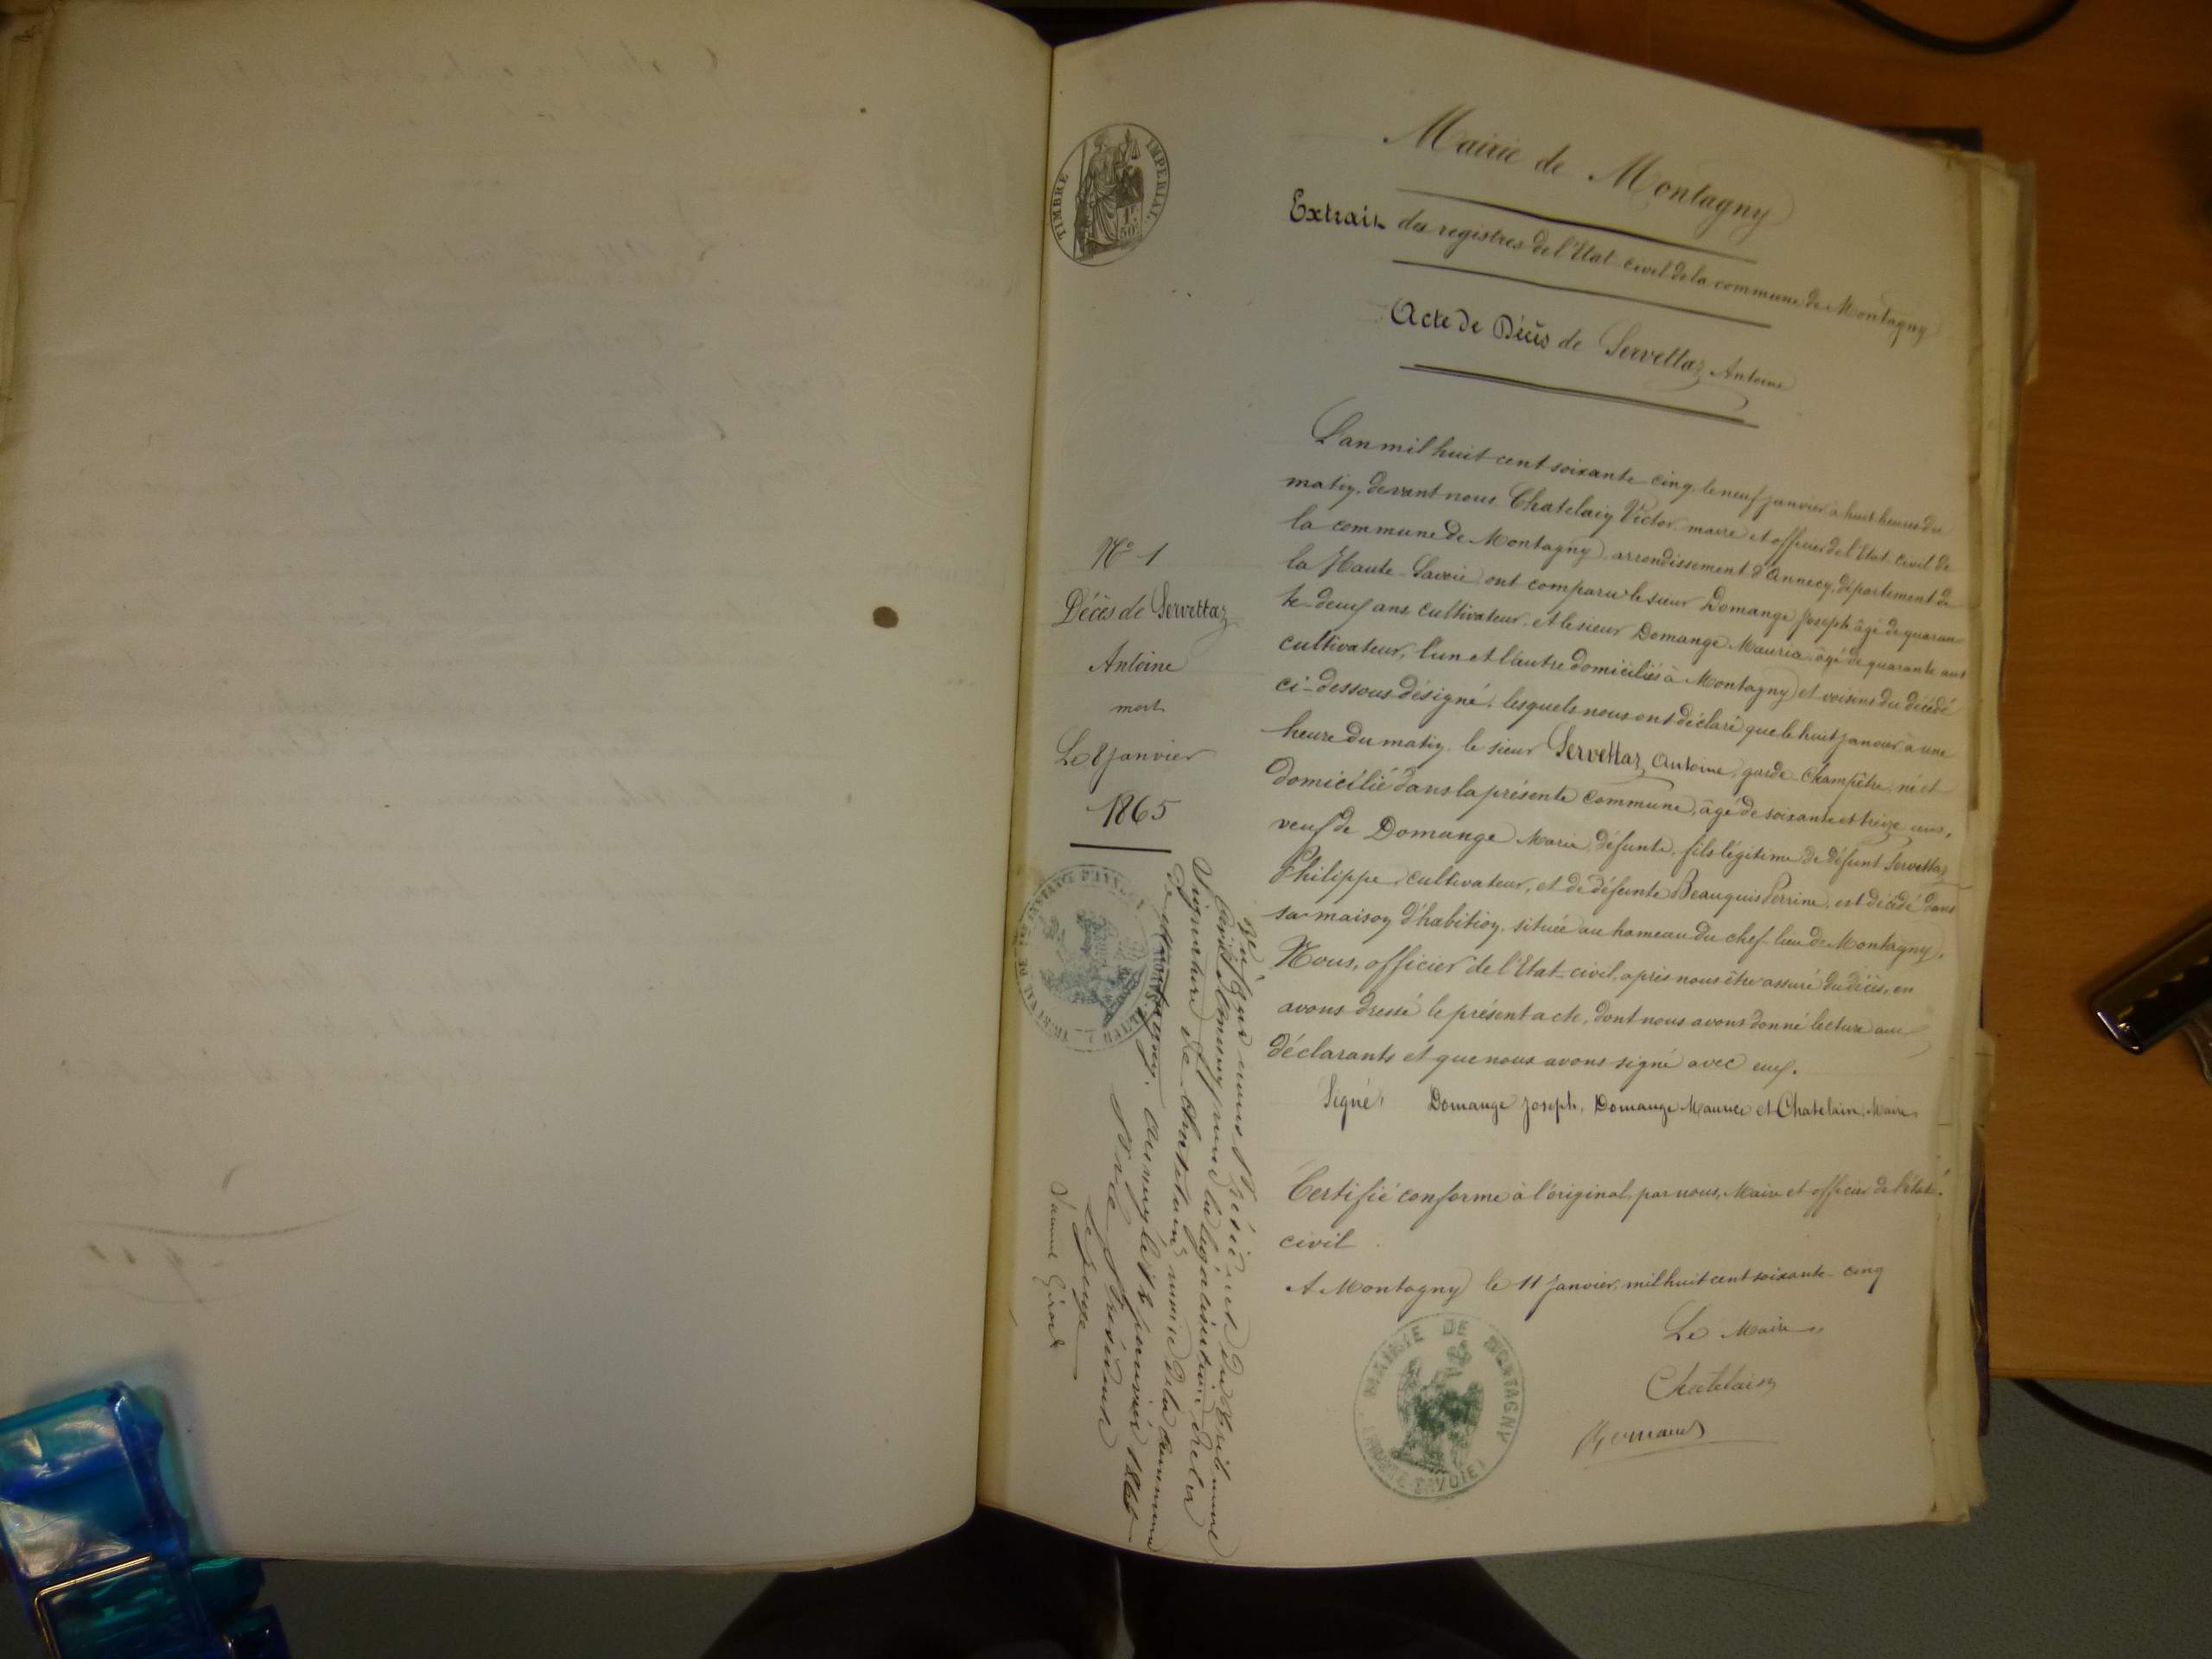 TIMBRE IMPERIAL
1F
50c
Mairie de Montagny
Extrait des registres de l'Etat civil de la commune de Montagny
Acte de Décès de Servettaz Antoine
L'an mil huit cent soixante cinq, le neuf janvier à huit heures du
matin, devant nous Chatelain Victor, maire et officier de l'Etat civil de
la commune de Montagny, arrondissement d'Annecy, département de
la Haute-Savoie, ont comparu le sieur Domange Joseph âgé de quaran-
te-deux ans cultivateur, et le sieur Domange Maurice âgé de quarante ans
cultivateur, l'un et l'autre domiciliés à Montagny et voisins du décédé
ci-dessous désigné, lesquels nous ont déclaré que le huit janvier à une
heure du matin, le sieur Servettaz Antoine, garde-champêtre, né et
domicilié dans la présente commune, âgé de soixante et treize ans,
veuf de Domange Marie, défunte, fils légitime de défunt Servettaz
Philippe, cultivateur, et de défunte Beauquis Perrine, est décédé dans
sa maison d'habition, située au hameau du chef-lieu de Montagny.
Nous, officier de l'Etat-civil, après nous être assuré du décès, en
avons dressé le présent acte, dont nous avons donné lecture aux
déclarants et que nous avons signé avec eux.
Signé: Domange Joseph, Domange Maurice et Chatelain, Maire
Certifié conforme à l'original, par nous, Maire et officier de l'état-
civil
A Montagny le 11 Janvier, mil huit cent soixante-cinq
Le Maire
Chatelain
MAIRIE DE MONTAGNY
(HAUTE-SAVOIE)
N° 1
Décès de Servettaz
Antoine
mort
Le 8 janvier
1865
TRIBUNAL DE PREMIERE INSTANCE D'ANNECY
Vu par nous Président du Tribunal
Civil d'Annecy pour la légalisation de la
Signature de Chatelain maire de la Commune
de Montagny. Annecy le janvier 1865
Pour le Président
Le Juge